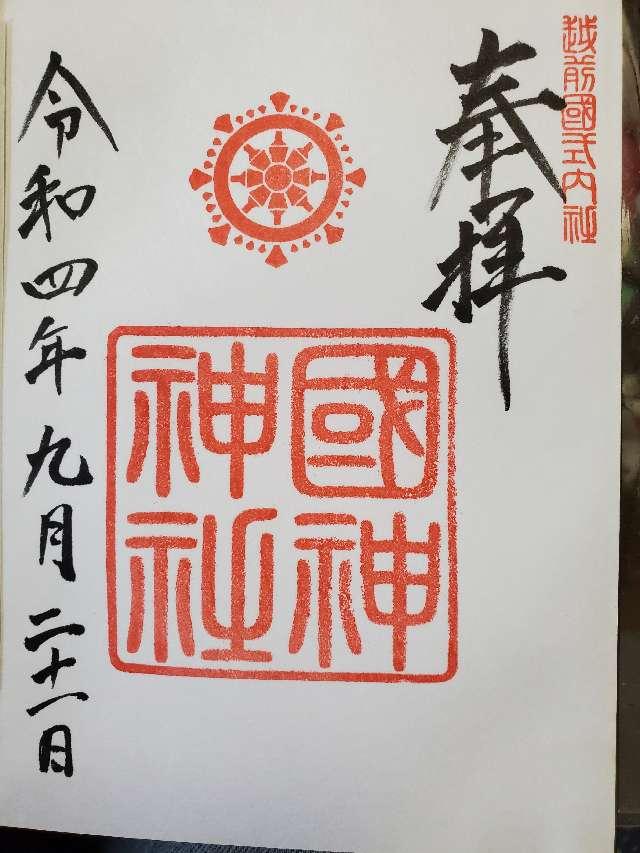 越前國式内社
奉拝
國神
神社
令和四年九月二十一日